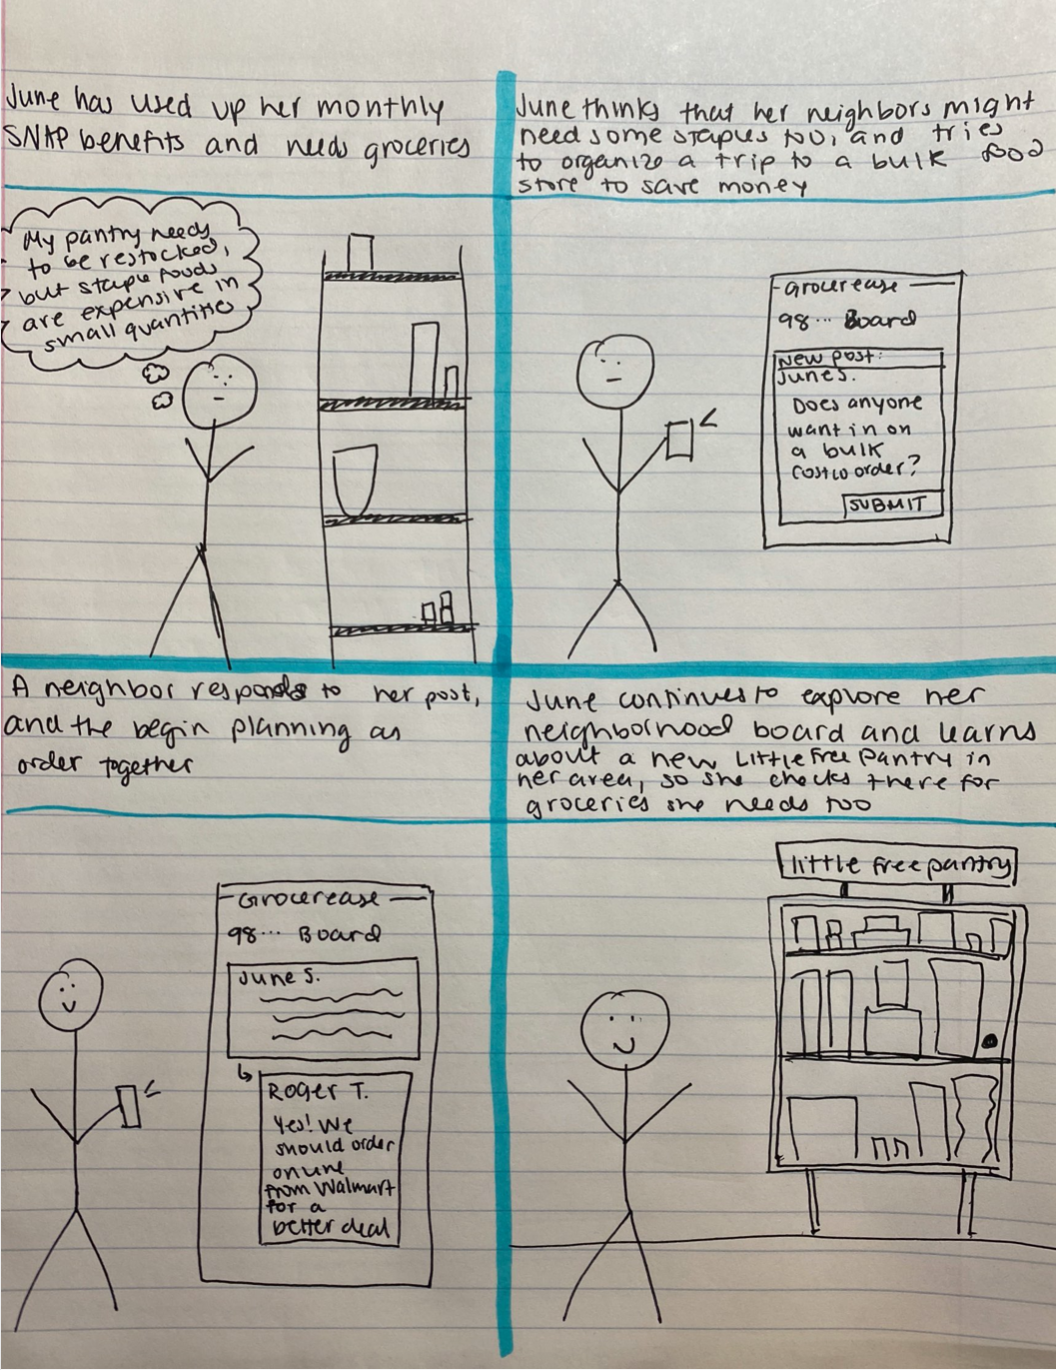 June has used up her monthly
SNAP benefits and needs groceries
My pantry needs
to be restocked,
but staple foods
are expensive in
small quantities
June thinks that her neighbors might
need some staples too, and tries
to organize a trip to a bulk food
store to save money
Grocerease
98... Board
New post:
June S.
Does anyone
want in on
a bulk
costco order?
SUBMIT
A neighbor responds to her post,
and the begin planning an
order together
Grocerease
98... Board
June S.
Roger T.
Yes! We
should order
online
from Walmart
for a
better deal
June continues to explore her
neighborhood board and learns
about a new Little Free Pantry in
her area, so she checks there for
groceries she needs too
little free pantry